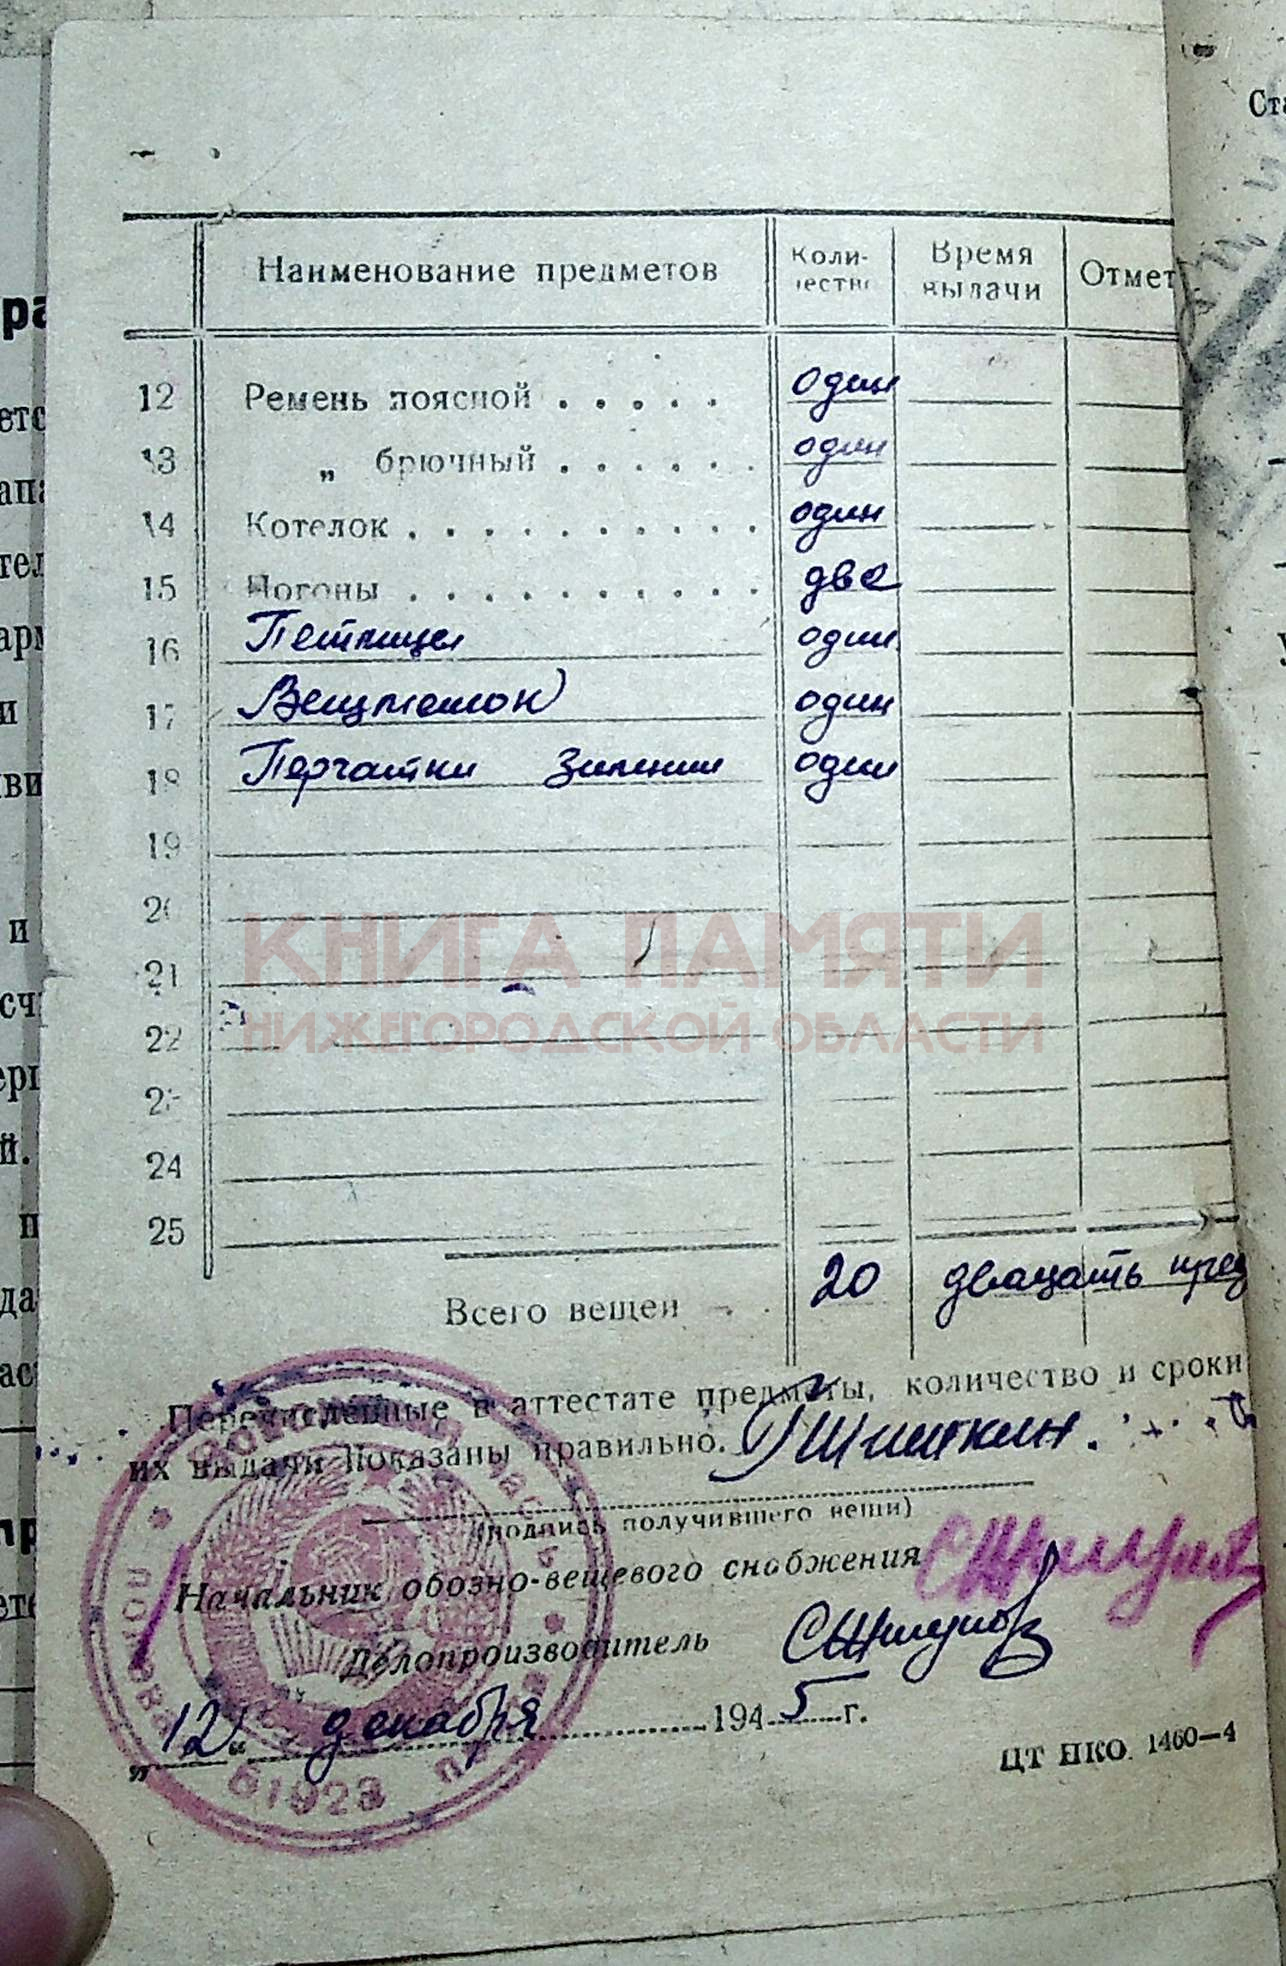 Наименование предметов
Коли-
честв
Время
выдачи
Отмет
12 Ремень поясной . . . . . один
13 „ брючный . . . . . . один
14 Котелок . . . . . . . . . . один
15 Погоны . . . . . . . . . . две
16 Петлицы один
17 Вещмешок один
18 Перчатки зимнии один
19
20
КНИГА ПАМЯТИ
21
НИЖЕГОРОДСКОЙ ОБЛАСТИ
22
23
24
25
Всего вещей 20 двацать пред
Перечисленные в аттестате предметы, количество и сроки
их выдачи показаны правильно. Шишкин.
(подпись получившего вещи)
Начальник обозно-вещевого снабжения
Делопроизводитель
„12“ декабря 1945 г.
ЦТ НКО. 1460—4
Полевая почта
войсковая часть
61923